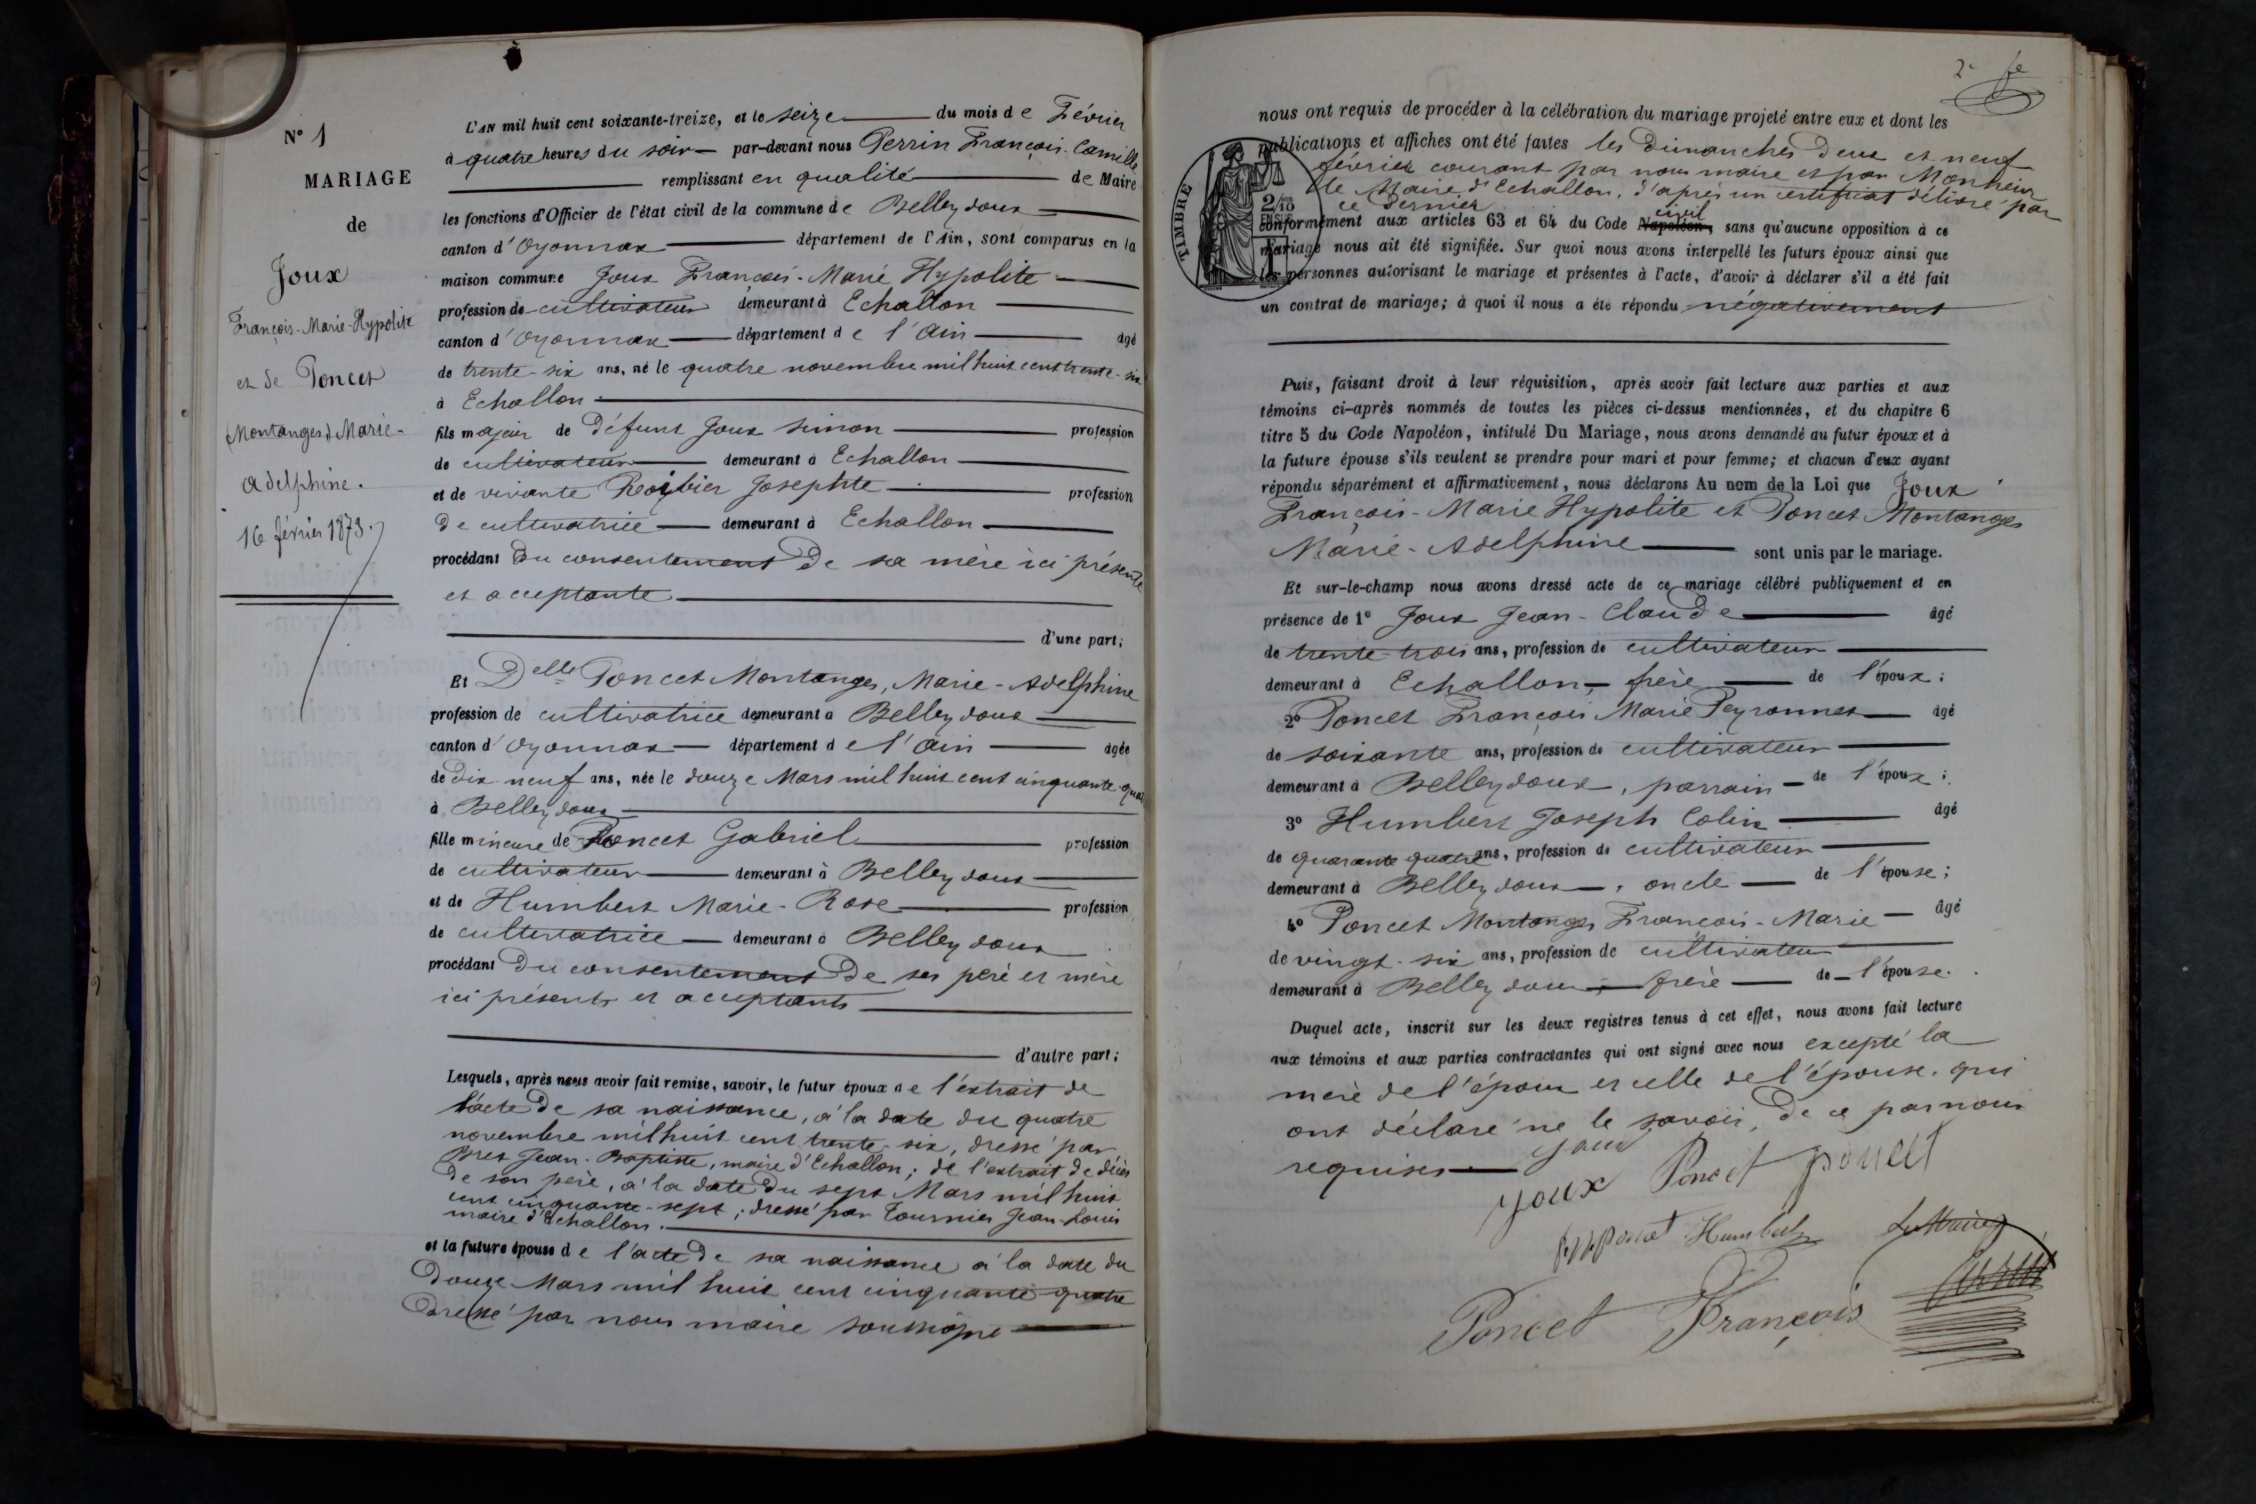 N° 1
MARIAGE
de
Joux
François-Marie-Hypolite
et de Poncet
(Montanges) Marie-
Adelphine.
16 février 1873.
L'AN mil huit cent soixante-treize, et le seize du mois de Février
à quatre heures du soir par-devant nous Perrin François-Camille
remplissant en qualité de Maire
les fonctions d'Officier de l'état civil de la commune de Belleydoux
canton d'Oyonnax département de l'Ain, sont comparus en la
maison commune Joux François-Marie Hypolite
profession de cultivateur demeurant à Echallon
canton d'Oyonnax département de l'Ain âgé
de trente-six ans, né le quatre novembre mil huit cent trente-six
à Echallon
fils majeur de défunt Joux Simon profession
de cultivateur demeurant à Echallon
et de vivante Josephte profession
de cultivatrice demeurant à Echallon
procédant du consentement de sa mère ici présente
et acceptante
d'une part;
Et Delle Poncet Montanges, Marie-Adelphine
profession de cultivatrice demeurant à Belleydoux
canton d'Oyonnax département de l'Ain âgée
de dix neuf ans, née le douze Mars mil huit cent cinquante quat
à Belleydoux
fille mineure de Poncet Gabriel profession
de cultivateur demeurant à Belleydoux
et de Humbert Marie-Rose profession
de cultivatrice demeurant à Belleydoux
procédant du consentement de ses père et mère
ici présents et acceptants
d'autre part;
Lesquels, après nous avoir fait remise, savoir, le futur époux de l'extrait de
l'acte de sa naissance, à la date du quatre
novembre mil huit cent trente-six, dressé par
Jean-Baptiste, maire d'Echallon; de l'extrait de décès
de son père, à la date du sept Mars mil huit
cent cinquante-sept; dressé par Tournier Jean-Louis
maire d'Echallon.
et la future épouse de l'acte de sa naissance à la date du
douze Mars mil huit cent cinquante quatre
dressé par nous maire soussigné
2e fe
nous ont requis de procéder à la célébration du mariage projeté entre eux et dont les
publications et affiches ont été faites les dimanches deux et neuf
février courant par nous maire et par Monsieur
le Maire d'Echallon, d'après un certificat délivré par
ce dernier
TIMBRE
2/10
EN SUS
conformément aux articles 63 et 64 du Code Napoléon, civil sans qu'aucune opposition à ce
mariage nous ait été signifiée. Sur quoi nous avons interpellé les futurs époux ainsi que
les personnes autorisant le mariage et présentes à l'acte, d'avoir à déclarer s'il a été fait
un contrat de mariage; à quoi il nous a été répondu négativement
Puis, faisant droit à leur réquisition, après avoir fait lecture aux parties et aux
témoins ci-après nommés de toutes les pièces ci-dessus mentionnées, et du chapitre 6
titre 5 du Code Napoléon, intitulé Du Mariage, nous avons demandé au futur époux et à
la future épouse s'ils veulent se prendre pour mari et pour femme; et chacun d'eux ayant
répondu séparément et affirmativement, nous déclarons Au nom de la Loi que Joux
François-Marie Hypolite et Poncet Montanges
Marie-Adelphine sont unis par le mariage.
Et sur-le-champ nous avons dressé acte de ce mariage célébré publiquement et en
présence de 1° Joux Jean-Claude âgé
de trente-trois ans, profession de cultivateur
demeurant à Echallon, frère de l'époux;
2° Poncet François Marie Peyronnet âgé
de soixante ans, profession de cultivateur
demeurant à Belleydoux, parrain de l'époux;
3° Humbert Joseph Colin âgé
de quarante quatre ans, profession de cultivateur
demeurant à Belleydoux, oncle de l'épouse;
4° Poncet Montanges François-Marie âgé
de vingt-six ans, profession de cultivateur
demeurant à Belleydoux, frère de l'épouse.
Duquel acte, inscrit sur les deux registres tenus à cet effet, nous avons fait lecture
aux témoins et aux parties contractantes qui ont signé avec nous excepté la
mère de l'époux et celle de l'épouse, qui
ont déclaré ne le savoir, de ce par nous
requises Joux
Joux Poncet poncet
Poncet Humbert Le Maire
Poncet François Perrin